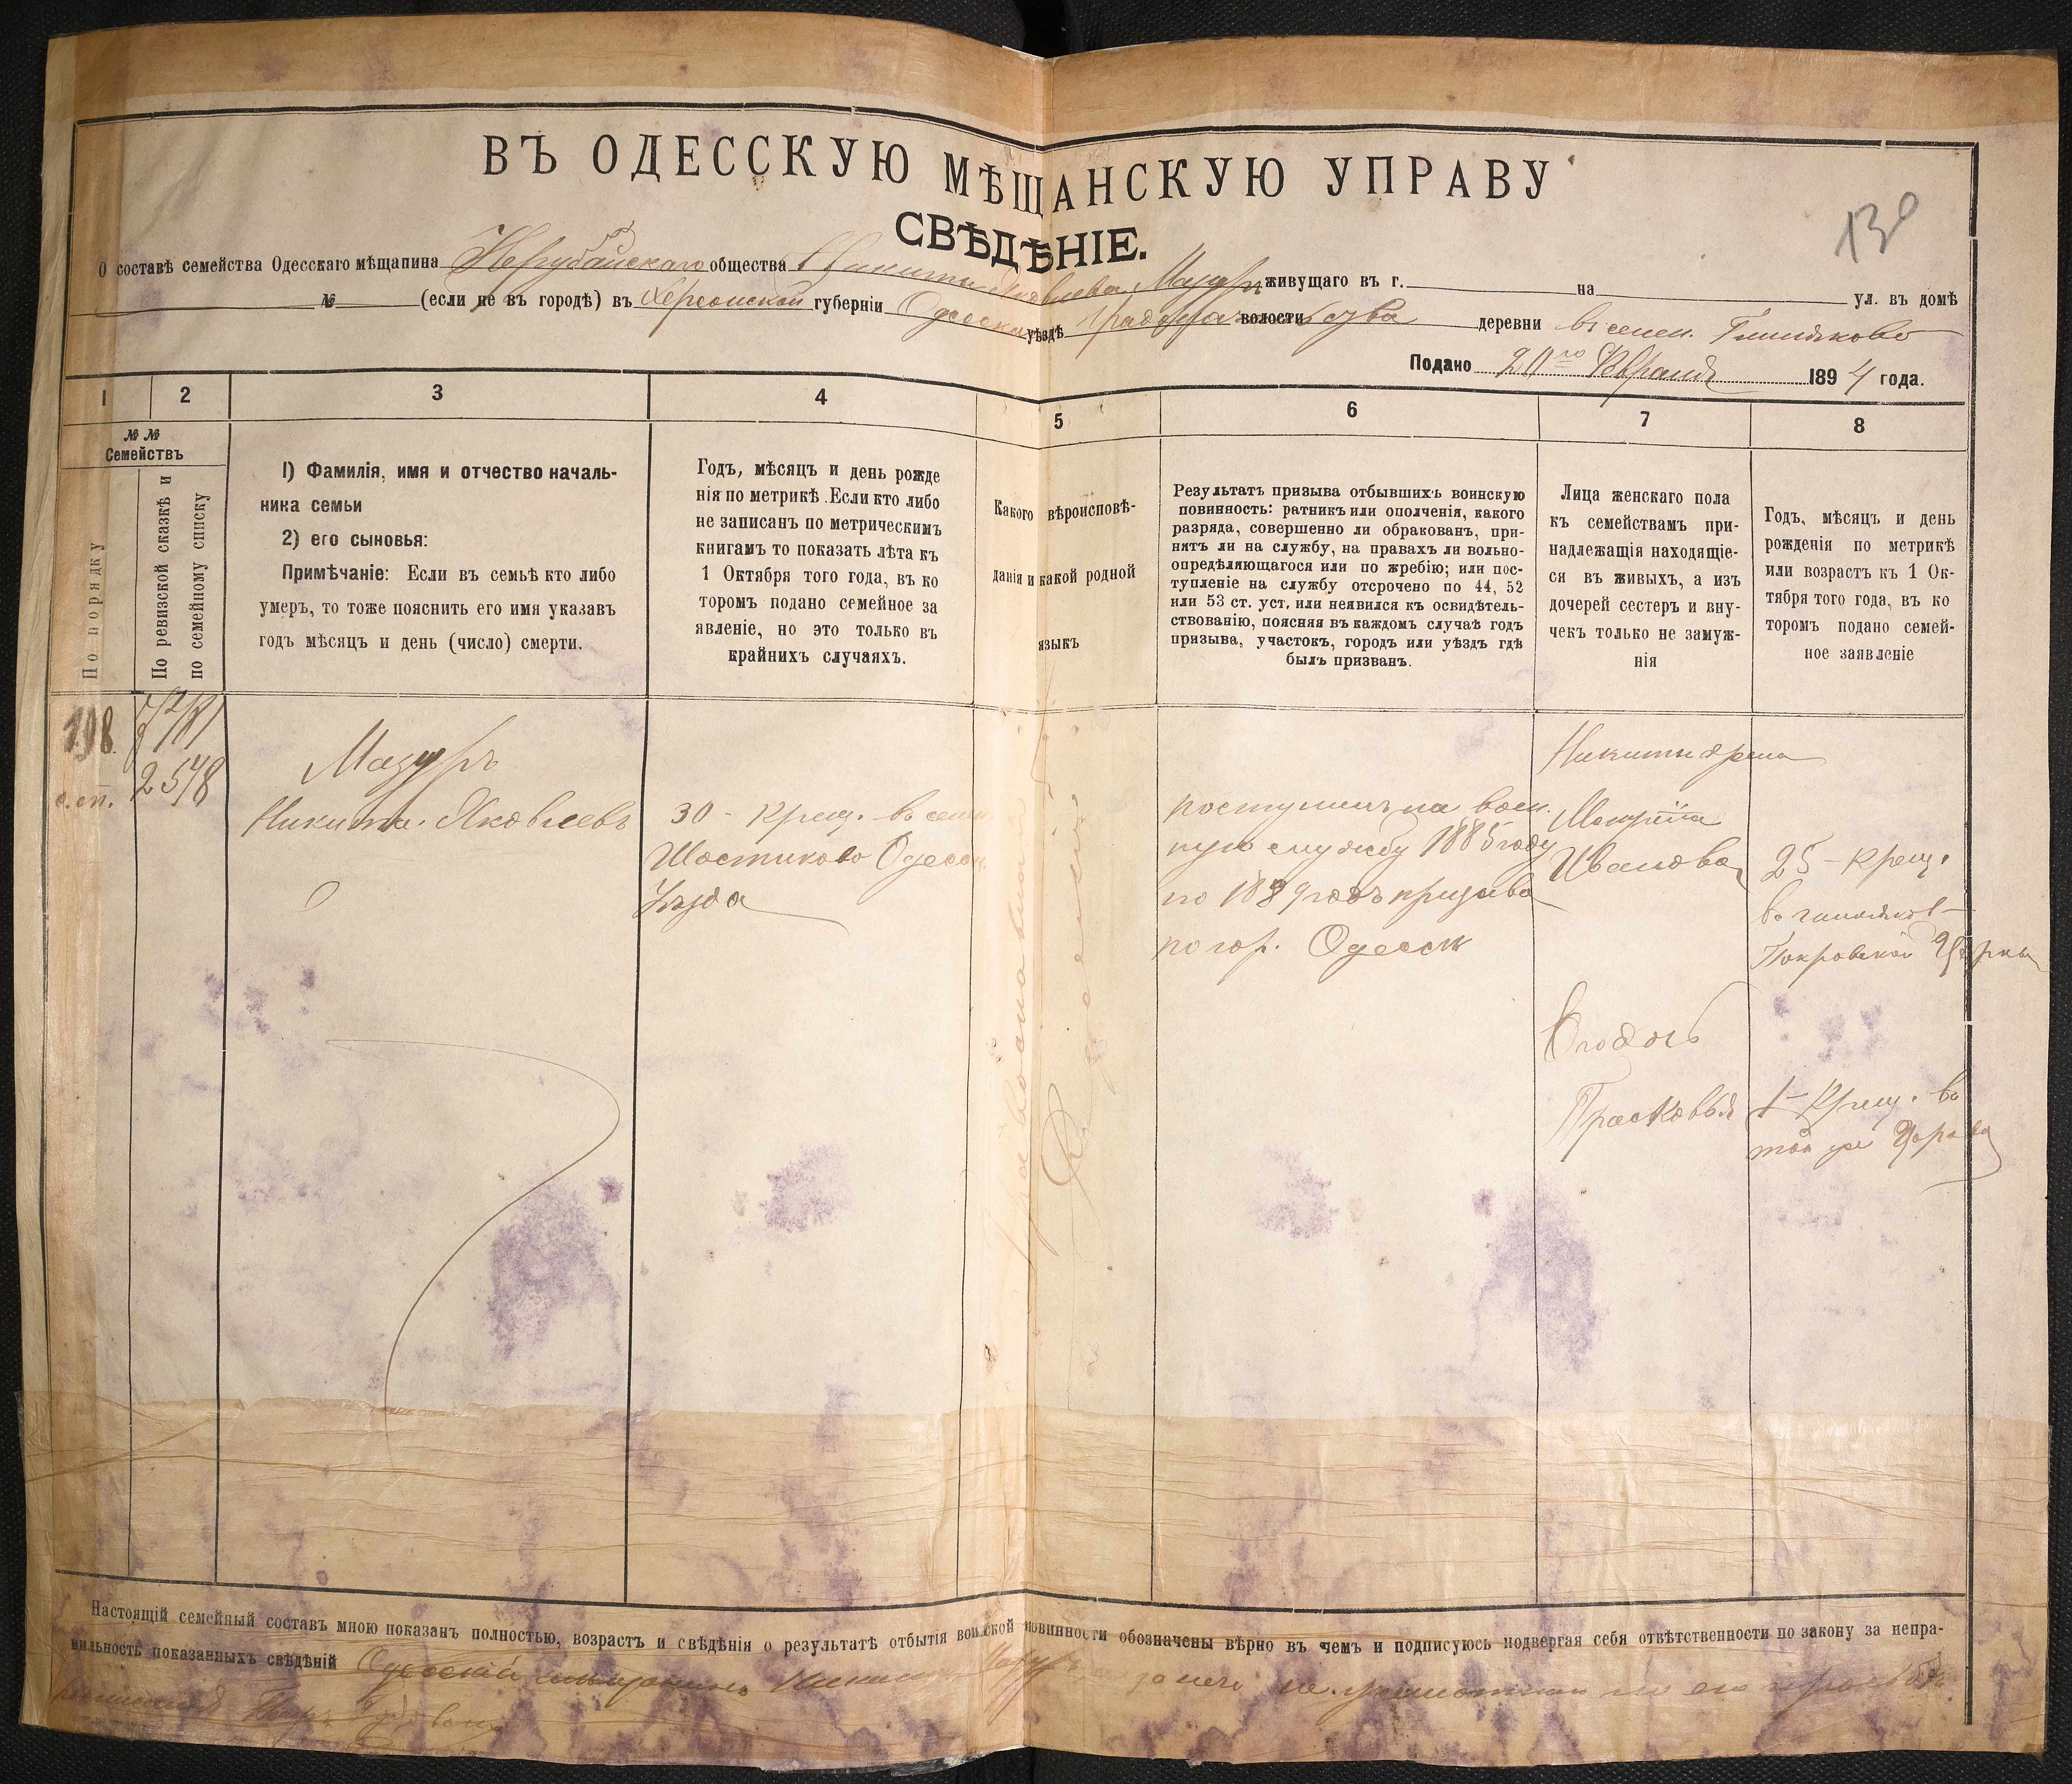 ВЪ ОДЕССКУЮ МѢЩАНСКУЮ УПРАВУ
130
СВѢДѢНІЕ.
О составѣ семейства Одесскаго мѣщанина Нерубайскаго общества Никиты Яковлева Мазуръ живущаго въ г. на
№ (если не въ городѣ) въ Херсонской губерніи Одесска уѣздѣ Градоначальства волости деревни въ селен. Гниляково ул. въ домѣ
Подано 20го Февраля 1894 года.
1 2 3 4 5 6 7 8
№ №
Семействъ
По порядку
По ревизской сказкѣ и
по семейному списку
1) Фамилія, имя и отчество началь-
ника семьи
2) его сыновья:
Примѣчаніе: Если въ семьѣ кто либо
умеръ, то тоже пояснить его имя указавъ
годъ мѣсяцъ и день (число) смерти.
Годъ, мѣсяцъ и день рожде
нія по метрикѣ. Если кто либо
не записанъ по метрическимъ
книгамъ то показать лѣта къ
1 Октября того года, въ ко
торомъ подано семейное за
явленіе, но это только въ
крайнихъ случаяхъ.
Какого вѣроисповѣ-
данія и какой родной
языкъ
Результатъ призыва отбывшихъ воинскую
повинность: ратникъ или ополченія, какого
разряда, совершенно ли обракован, при-
нятъ ли на службу, на правахъ ли вольно-
опредѣляющагося или по жребію; или пос-
тупленіе на службу отсрочено по 44, 52
или 53 ст. уст, или неявился къ освидѣтель-
ствованію, поясняя въ каждомъ случаѣ годъ
призыва, участокъ, городъ или уѣздъ гдѣ
былъ призванъ.
Лица женскаго пола
къ семействамъ при-
надлежащія находящіе-
ся въ живыхъ, а изъ
дочерей сестеръ и вну-
чекъ только не замуж-
нія
Годъ, мѣсяцъ и день
рожденія по метрикѣ
или возрастъ къ 1 Ок-
тября того года, въ ко
торомъ подано семей-
ное заявленіе
198.
с. сп.
2578
Мазуръ
Никита Яковлевъ
30 - крещ. въ селен
Шостиково Одесск
Уѣзда
Православнаго
Русскій
поступилъ на воен.
ную службу 1885 году
по 1889 годъ призыва
по гор. Одессѣ
Никиты жена
Матрёна
Иванова
25 - крещ.
въ гниляков-
Покровской Церкви
Его дочь
Прасковья
1 - крещ. въ
той же Церкви
Настоящій семейный составъ мною показанъ полностью, возрастъ и свѣдѣнія о результатѣ отбытія воинской повинности обозначены вѣрно въ чемъ и подписуюсь подвергая себя отвѣтственности по закону за непра-
вильность показанныхъ свѣдѣній Одесскій мѣщанинъ Никита Мазуръ а за него неграмотнаго по его просьбѣ